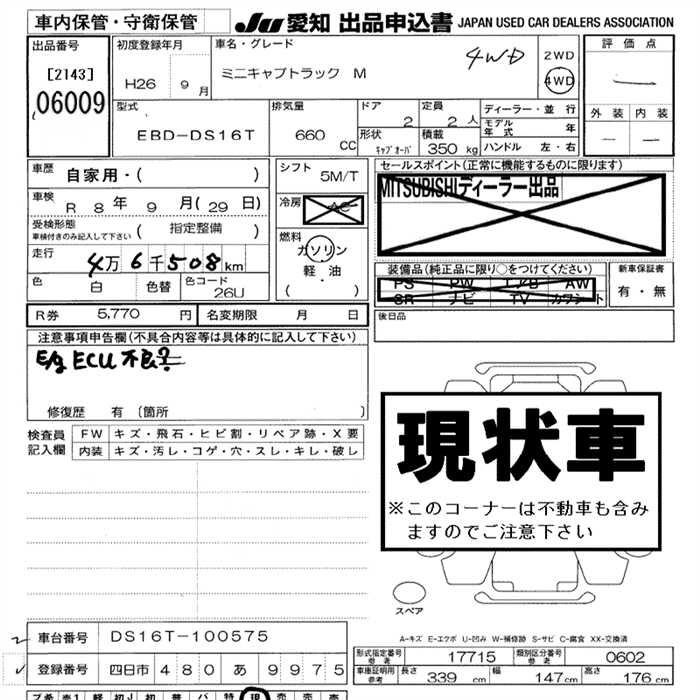 車内保管・守衛保管
JU 愛知 出品申込書 JAPAN USED CAR DEALERS ASSOCIATION
出品番号
[2143]
06009
初度登録年月
H26 9月
車名・グレード
ミニキャブトラック M
4WD
2WD
4WD
評価点
外装 内装
型式
EBD-DS16T
排気量
660 CC
ドア
2
定員
2 人
形状
キャブオーバ
積載
350 kg
ディーラー・並行
モデル年式 年
ハンドル 左・右
車歴 自家用・( )
車検 R 8年 9月(29日)
受検形態
車検付きのみ記入して下さい ( 指定整備 )
走行 4万6千508km
色 白 色替 色コード 26U
シフト 5M/T
冷房 AC
燃料
ガソリン
軽・油
( ・ )
セールスポイント(正常に機能するものに限ります)
MITSUBISHIディーラー出品
装備品(純正品に限り○をつけてください)
PS PW エアB AW
SR ナビ TV カワシート
新車保証書
有・無
R券 5,770 円 名変期限 月 日
後日品
注意事項申告欄(不具合内容等は具体的に記入して下さい)
E/g ECU不良?
修復歴 有 (箇所 )
検査員記入欄
FW キズ・飛石・ヒビ割・リペア跡・X要
内装 キズ・汚レ・コゲ・穴・スレ・キレ・破レ
現状車
※このコーナーは不動車も含み
ますのでご注意下さい
スペア
A-キズ E-エクボ U-凹み W-補修跡 S-サビ C-腐食 XX-交換済
車台番号 DS16T-100575
登録番号 四日市 480 あ 9975
形式指定番号 参考 17715 類別区分番号 参考 0602
車庫証明用 参考 長さ 339 cm 幅 147 cm 高さ 176 cm